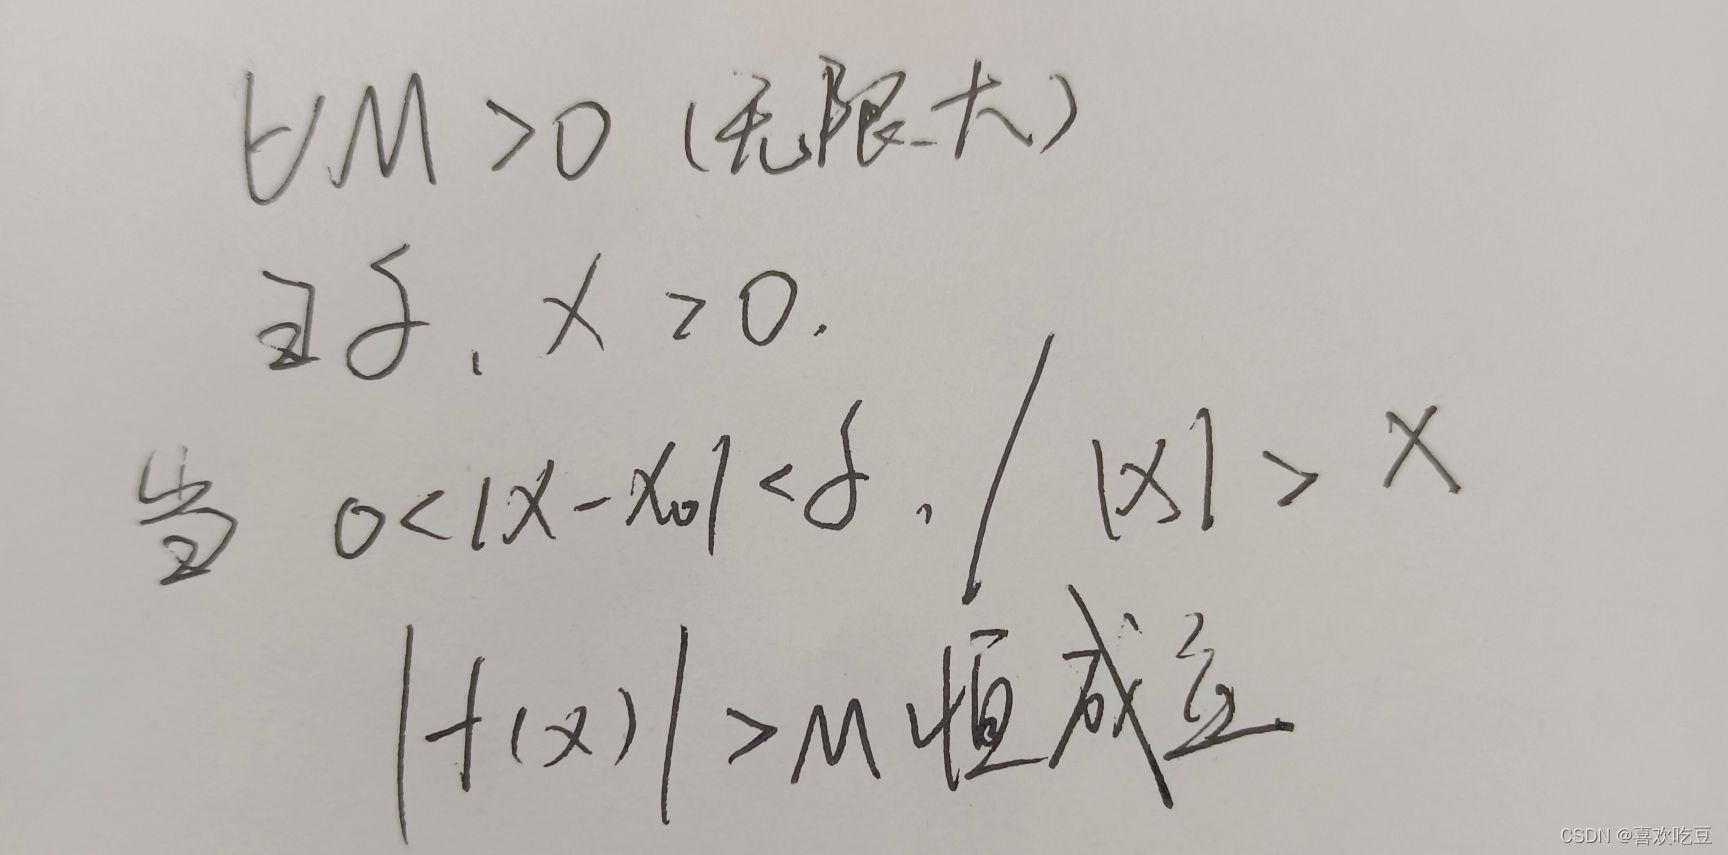 ∀M>0 (无限大)
∃δ, X>0.
当 0<|x-x₀|<δ, / |x|>X
|f(x)|>M 恒成立
CSDN @喜欢吃豆